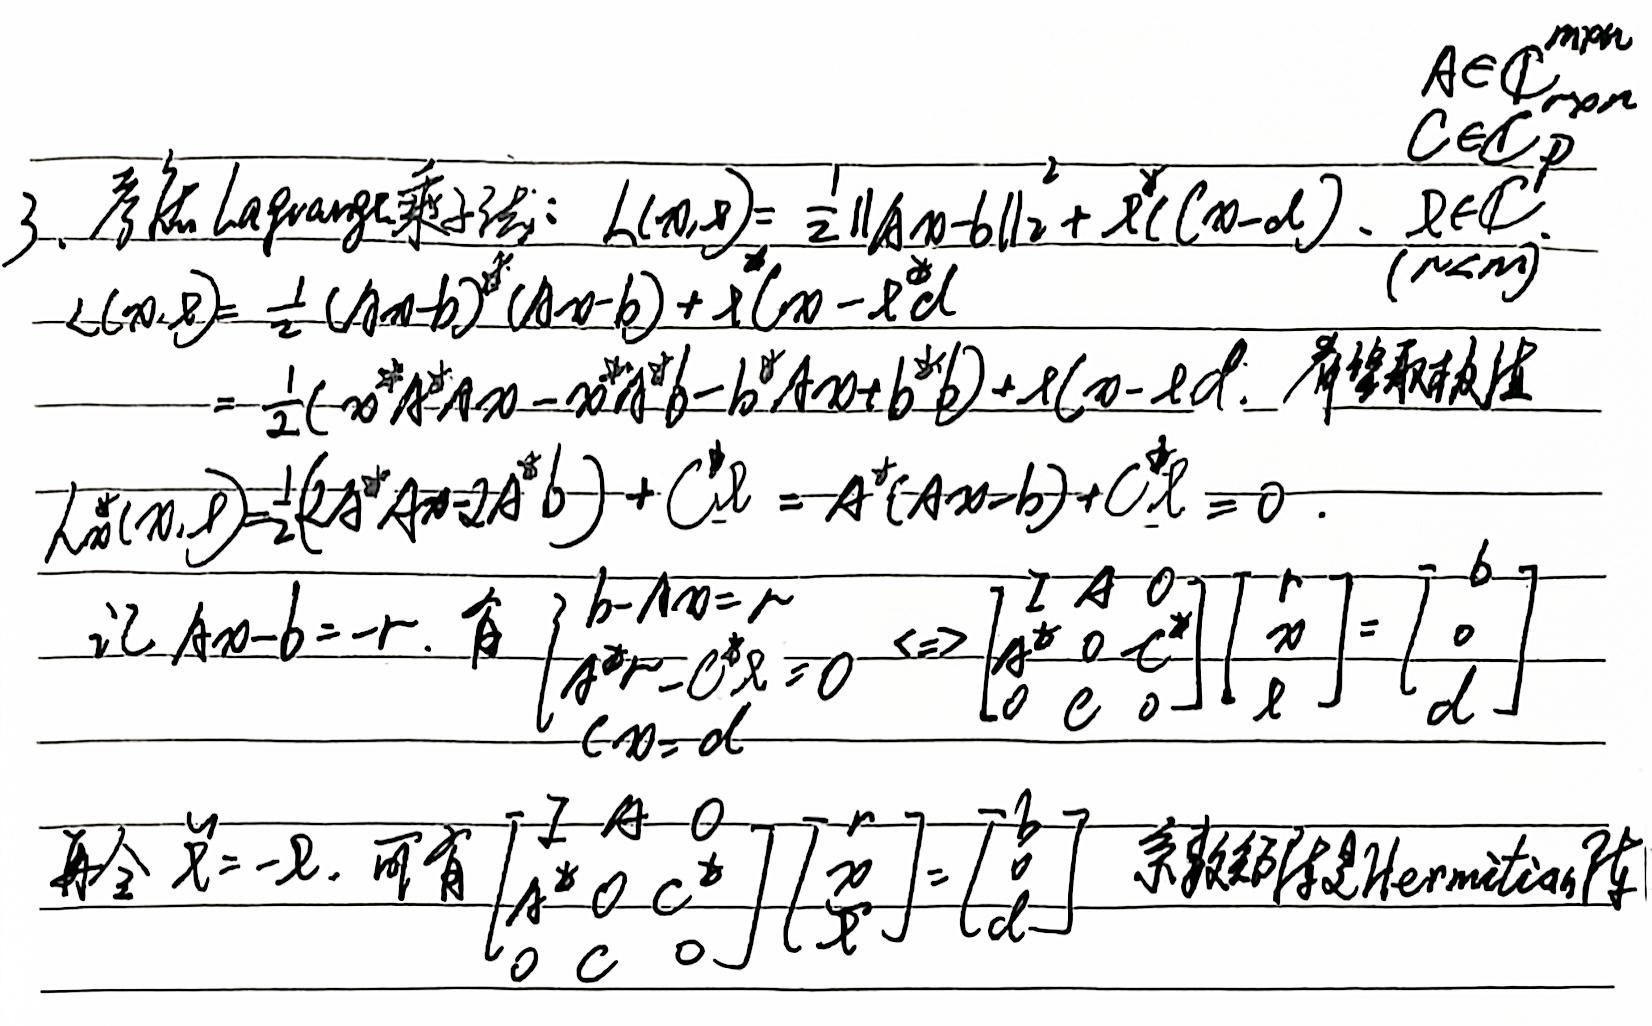 A∈ℂ^{m×n}
C∈ℂ_p^{r×n}
3. 考虑Lagrange乘子法: L(x,l)= 1/2||Ax-b||₂² + l*(Cx-d). l∈ℂ^r.
(r<n)
L(x,l)= 1/2 (Ax-b)*(Ax-b) + l*Cx - l*d
= 1/2(x*A*Ax - x*A*b - b*Ax + b*b) + lCx - ld. 希望取极值
L_x*(x,l)= 1/2(2A*Ax-2A*b) + C*l = A*(Ax-b) + C*l = 0.
记 Ax-b=-r. 有 { b-Ax=r, A*r-C*l=0, Cx=d <=> [I A 0; A* 0 -C*; 0 C 0] [r; x; l] = [b; 0; d]
再令 l̃=-l. 可有 [I A 0; A* 0 C*; 0 C 0] [r; x; l̃] = [b; 0; d] 系数矩阵是Hermitian阵